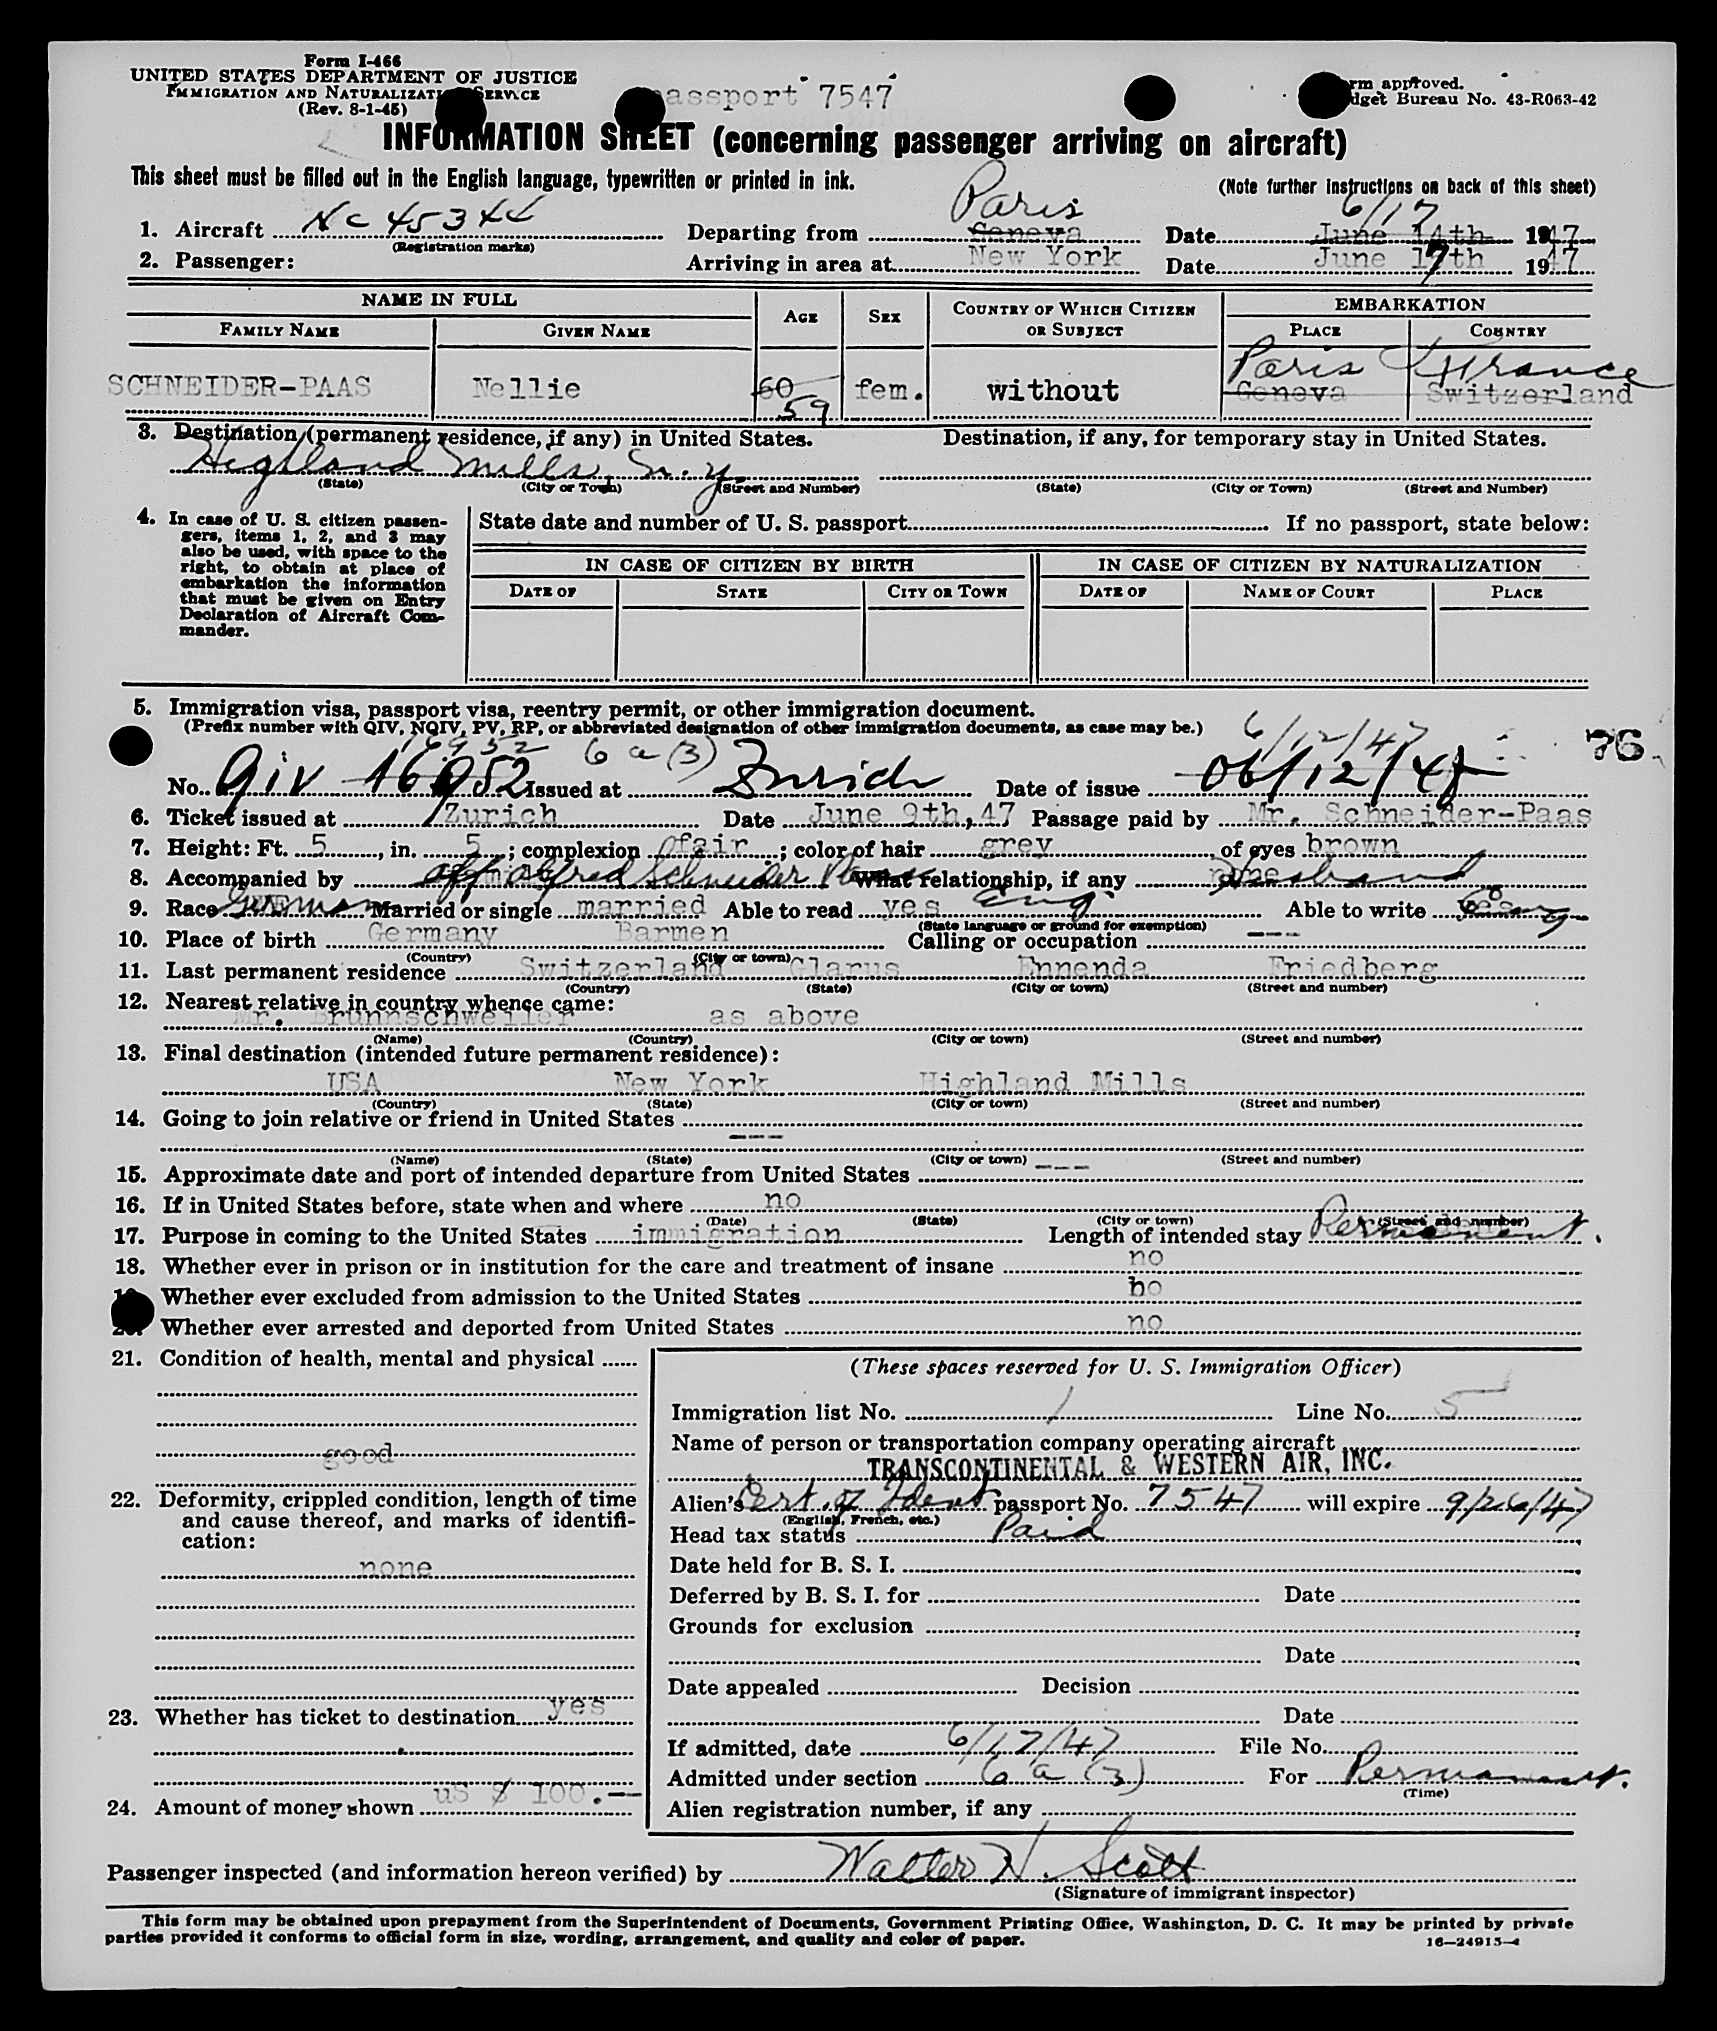 Form I-466
UNITED STATES DEPARTMENT OF JUSTICE
IMMIGRATION AND NATURALIZATION SERVICE
(Rev. 8-1-45)
passport 7547
Form approved.
Budget Bureau No. 43-R063-42
INFORMATION SHEET (concerning passenger arriving on aircraft)
This sheet must be filled out in the English language, typewritten or printed in ink.
(Note further instructions on back of this sheet)
Paris 6/17
1. Aircraft NC 45344 Departing from Geneva Date June 14th 1947
(Registration marks)
2. Passenger: Arriving in area at New York Date June 17th 1947
NAME IN FULL AGE SEX COUNTRY OF WHICH CITIZEN OR SUBJECT EMBARKATION
FAMILY NAME GIVEN NAME PLACE COUNTRY
Paris France
SCHNEIDER-PAAS Nellie 60 fem. without Geneva Switzerland
59
3. Destination (permanent residence, if any) in United States. Destination, if any, for temporary stay in United States.
Highland Mills, N.Y.
(State) (City or Town) (Street and Number) (State) (City or Town) (Street and Number)
4. In case of U. S. citizen passengers, items 1, 2, and 3 may also be used, with space to the right, to obtain at place of embarkation the information that must be given on Entry Declaration of Aircraft Commander.
State date and number of U. S. passport If no passport, state below:
IN CASE OF CITIZEN BY BIRTH IN CASE OF CITIZEN BY NATURALIZATION
DATE OF STATE CITY OR TOWN DATE OF NAME OF COURT PLACE
5. Immigration visa, passport visa, reentry permit, or other immigration document.
(Prefix number with QIV, NQIV, PV, RP, or abbreviated designation of other immigration documents, as case may be.)
16952 6a(3) 6/12/47 76
No. Qiv 16952 Issued at Zurich Date of issue 06/12/47
6. Ticket issued at Zurich Date June 9th, 47 Passage paid by Mr. Schneider-Paas
7. Height: Ft. 5, in. 5; complexion fair; color of hair grey of eyes brown
8. Accompanied by Alfred Schneider Paas What relationship, if any husband
9. Race German Married or single married Able to read yes Eng Able to write yes
(State language or ground for exemption)
10. Place of birth Germany Barmen Calling or occupation ---
(Country) (City or town)
11. Last permanent residence Switzerland Glarus Ennenda Friedberg
(Country) (State) (City or town) (Street and number)
12. Nearest relative in country whence came:
Mr. Brunnschweiler as above
(Name) (Country) (City or town) (Street and number)
13. Final destination (intended future permanent residence):
USA New York Highland Mills
(Country) (State) (City or town) (Street and number)
14. Going to join relative or friend in United States
---
(Name) (State) (City or town) (Street and number)
15. Approximate date and port of intended departure from United States ---
16. If in United States before, state when and where no
(Date) (State) (City or town) (Street and number)
17. Purpose in coming to the United States immigration Length of intended stay Permanent.
18. Whether ever in prison or in institution for the care and treatment of insane no
Whether ever excluded from admission to the United States no
20. Whether ever arrested and deported from United States no
21. Condition of health, mental and physical
good
22. Deformity, crippled condition, length of time and cause thereof, and marks of identification:
none
23. Whether has ticket to destination yes
24. Amount of money shown US $ 100.--
(These spaces reserved for U. S. Immigration Officer)
Immigration list No. 1 Line No. 5
Name of person or transportation company operating aircraft
TRANSCONTINENTAL & WESTERN AIR, INC.
Alien's Cert. of Ident passport No. 7547 will expire 9/26/47
(English, French, etc.)
Head tax status Paid
Date held for B. S. I.
Deferred by B. S. I. for Date
Grounds for exclusion
Date
Date appealed Decision
Date
If admitted, date 6/17/47 File No.
Admitted under section 6a(3) For Permanent.
(Time)
Alien registration number, if any
Passenger inspected (and information hereon verified) by Walter H. Scott
(Signature of immigrant inspector)
This form may be obtained upon prepayment from the Superintendent of Documents, Government Printing Office, Washington, D. C. It may be printed by private
parties provided it conforms to official form in size, wording, arrangement, and quality and color of paper.
16-24915-4